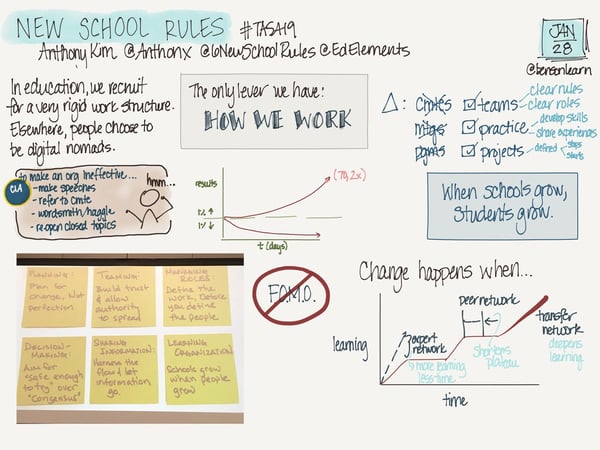 NEW SCHOOL RULES #TASA19
Anthony Kim @Anthonx @6NewSchoolRules @EdElements
JAN
28
@bensonlearn
In education, we recruit
for a very rigid work structure.
Elsewhere, people choose to
be digital nomads.
The only lever we have:
HOW WE WORK
Δ: Cmtes teams
mtgs practice
pgms projects
clear rules
clear roles
develop skills
share experiences
defined
stops
starts
CIA
to make an org ineffective...
- make speeches
- refer to cmte
- wordsmith/haggle
- reopen closed topics
hmm...
results
1% ↑
1% ↓
(70, 2x)
t (days)
When schools grow,
Students grow.
PLANNING:
Plan for
change, Not
perfection
TEAMING:
Build trust
& allow
authority
to spread
MANAGING
ROLES:
Define the
work, Before
you define
the people
DECISION-
MAKING:
Aim for
"safe enough
to try" over
"consensus"
SHARING
INFORMATION:
Harness the
flow & let
information
go.
LEARNING
ORGANIZATION:
Schools grow
when people
grow
F.O.M.O.
Change happens when...
learning
time
expert
network
more learning
less time
peer network
shortens
plateau
transfer
network
deepens
learning